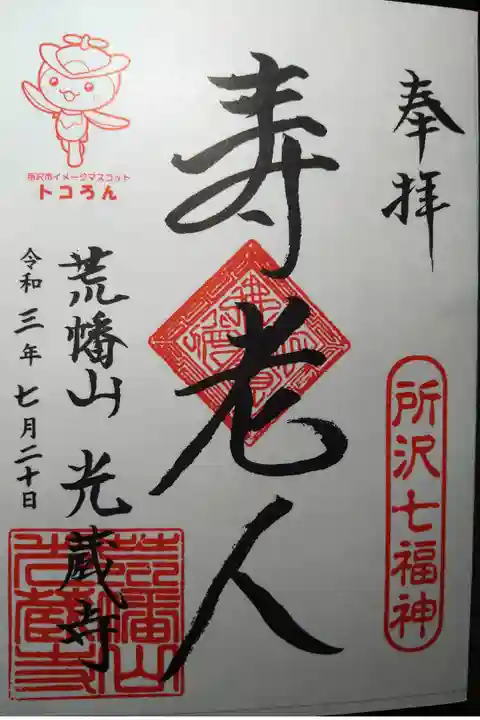 奉拝
所沢七福神
寿老人
荒幡山 光蔵寺
令和三年七月二十日
所沢市イメージマスコット
トコろん
荒幡山
光蔵寺